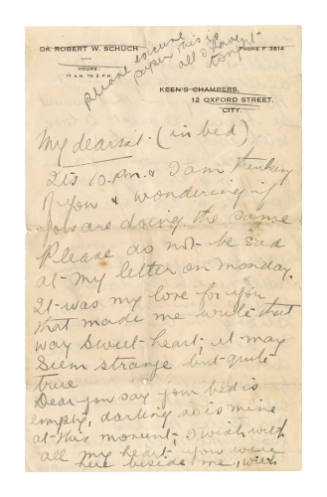 DR. ROBERT W. SCHUCH
HOURS:
11 A.M. TO 2 P.M.
PHONE F 3614
please excuse
paper this is
all I haven't
tonight
KEEN'S CHAMBERS,
12 OXFORD STREET,
CITY.
My dearest. (in bed)
Its 10.p.m. & I am thinking
of you & wondering if
you are doing the same
Please do not be sad
at my letter on Monday.
It was my love for you
that made me write that
way Sweetheart, it may
Seem strange but quite
true
Dear you say your bed is
empty, darling so is mine
at this moment, I wish with
all my heart you were
here beside me, with